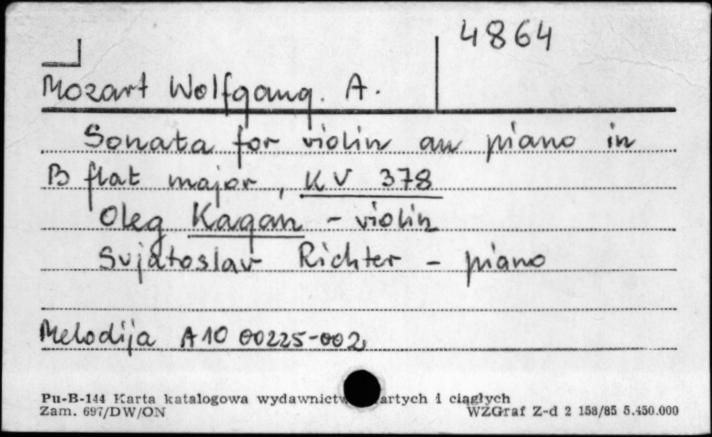 4864
Mozart Wolfgang. A.
Sonata for violin an piano in
B flat major, KV 378
Oleg Kagan - violin
Svjatoslav Richter - piano
Melodija A10 00225-002
Pu-B-144 Karta katalogowa wydawnictw artych i ciągłych
Zam. 697/DW/ON WZGraf Z-d 2 158/85 5.450.000